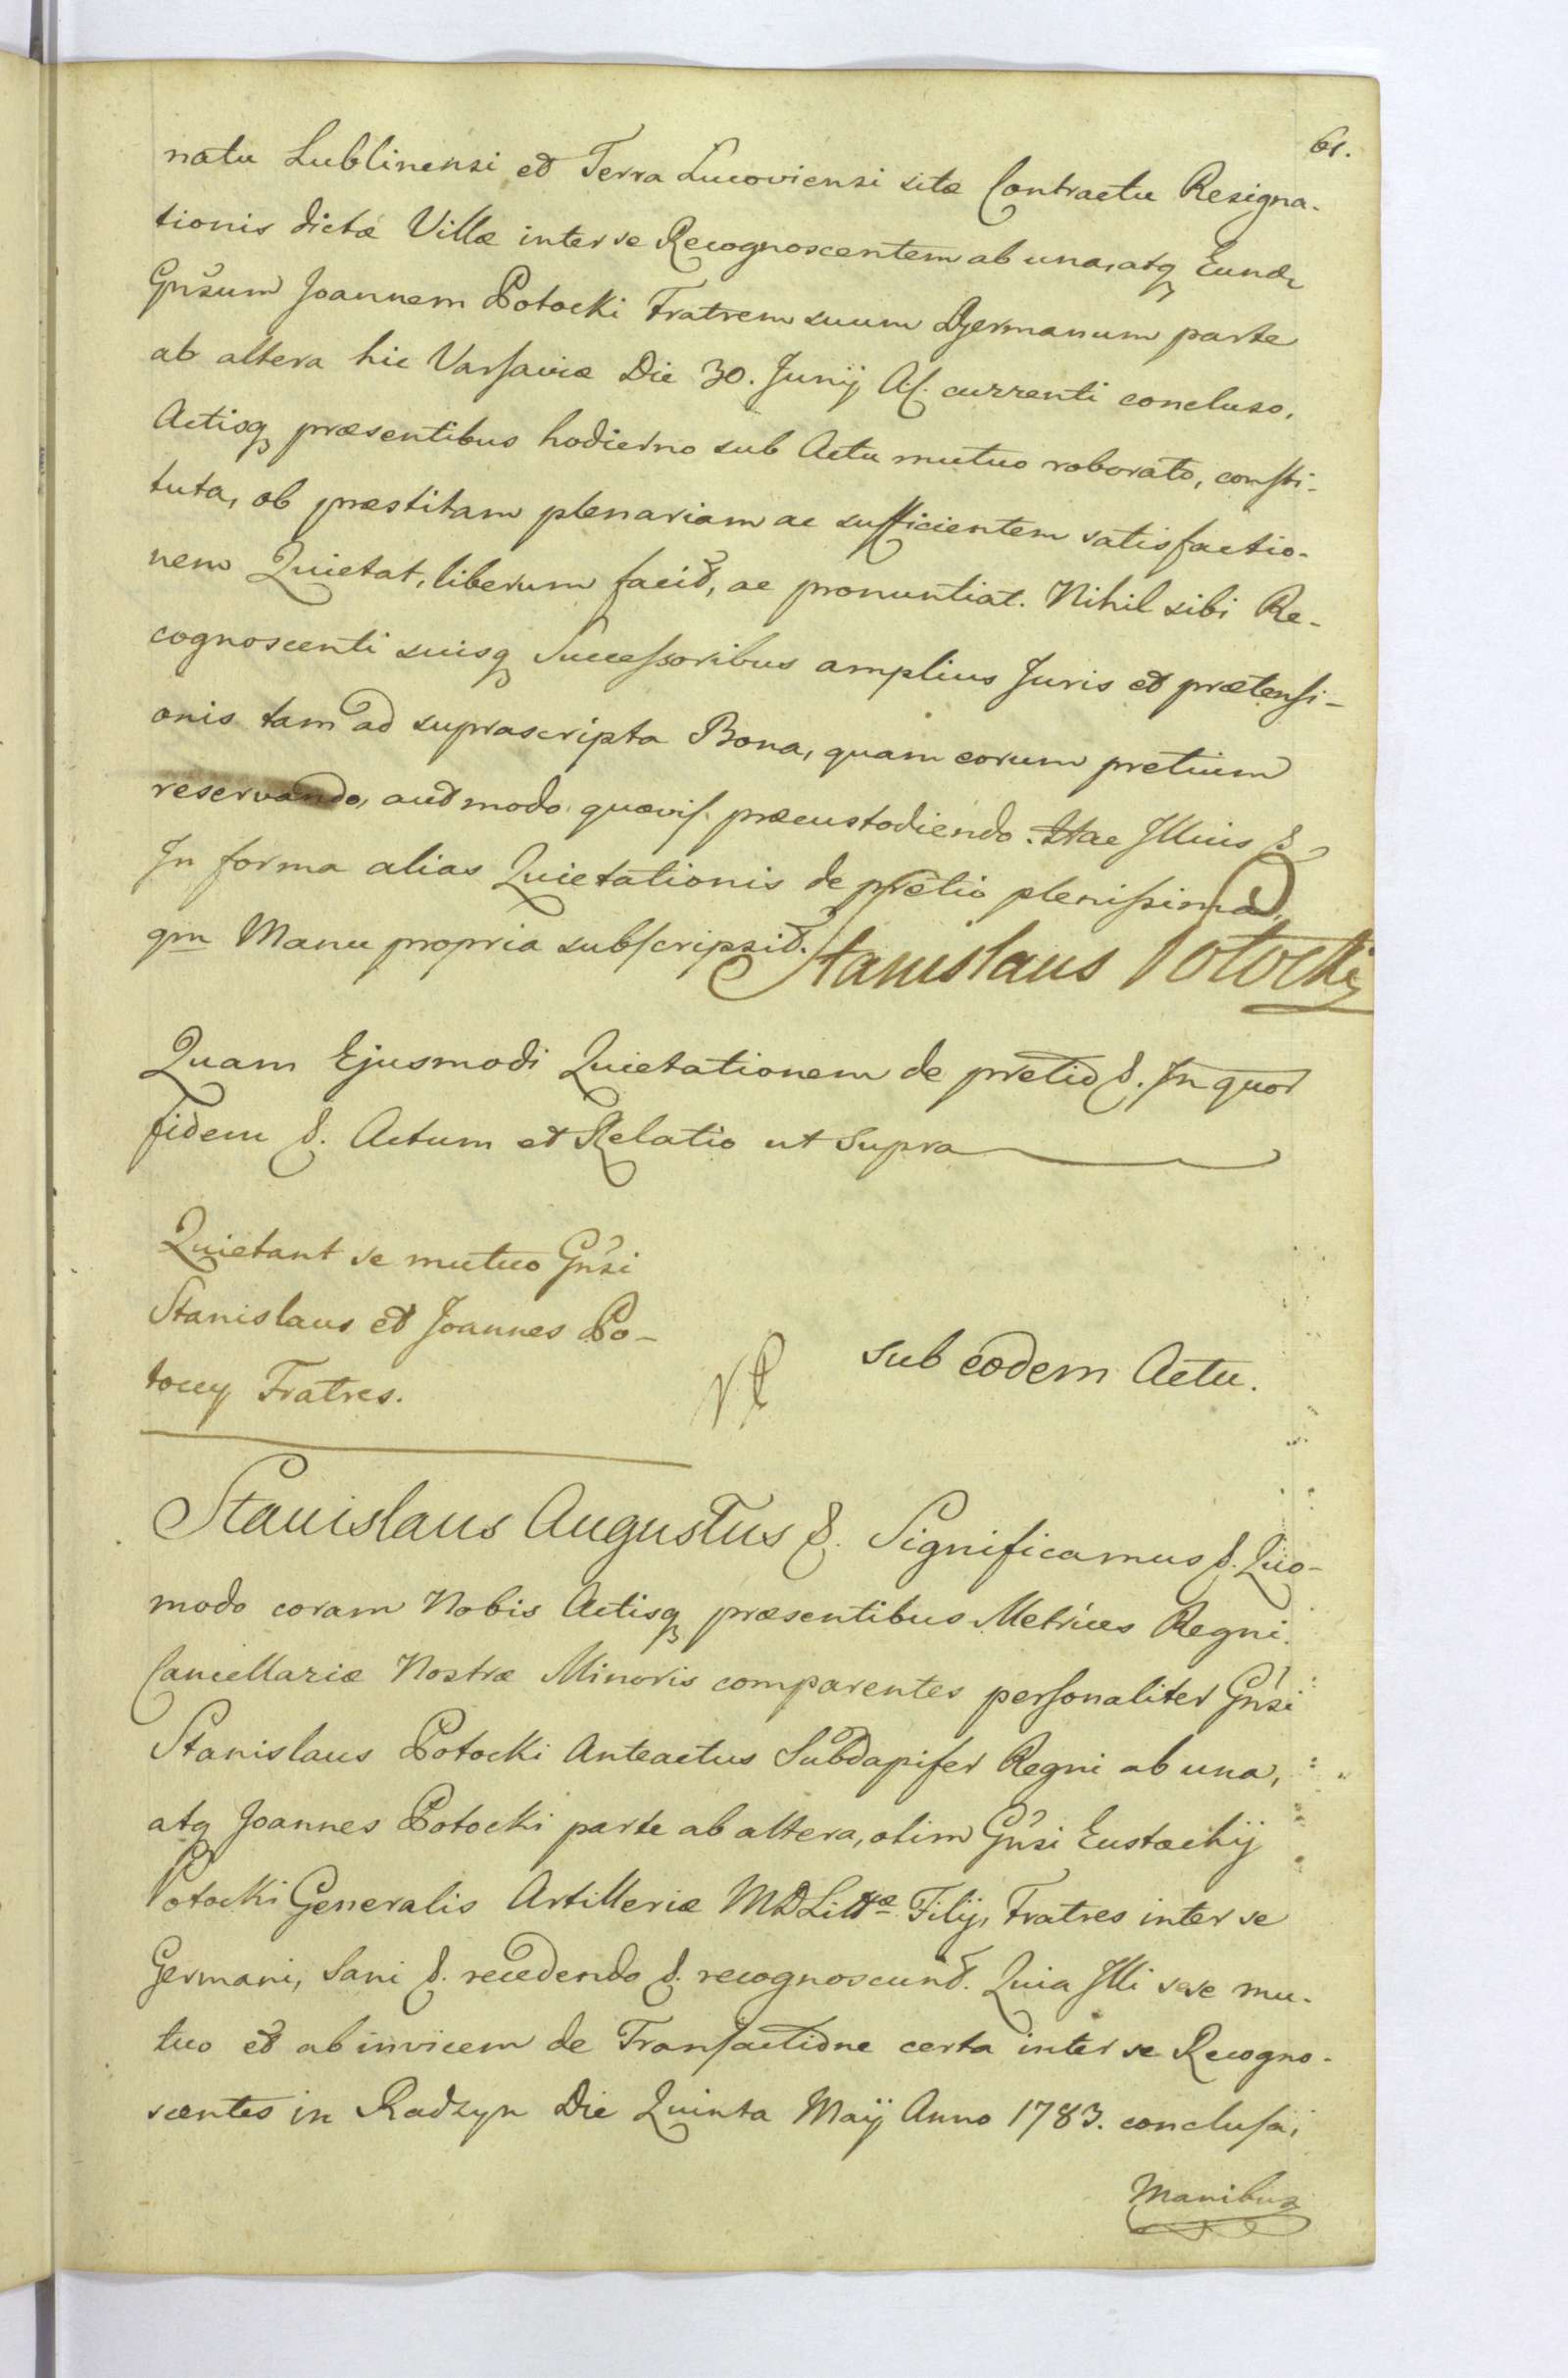 61.
natu Lublinensi et Terra Lucoviensi sitæ Contractu Resigna-
tionis dictæ Villæ inter se Recognoscentem ab una, atq Eund
Gnsum Joannem Potocki Fratrem suum Germanum parte
ab altera hic Varsaviæ Die 30. Junij A. currenti concluso,
Actisq præsentibus hodierno sub Actu mutuo roborato, consti-
tuta, ob præstitam plenariam ac sufficientem satisfactio-
nem Quietat, liberum facit, ac pronuntiat. Nihil sibi Re-
cognoscenti suisq Successoribus amplius Juris et prætensi-
onis tam ad suprascripta Bona, quam eorum pretium
reservando, aut modo quovis præcustodiendo. Hac Illius &
In forma alias Quietationis de pretio plenissima,
qm Manu propria subscripsit. Stanislaus Potocki
Quam Ejusmodi Quietationem de pretio &. In quor
fidem &. Actum et Relatio ut supra
Quietant se mutuo Gnsi
Stanislaus et Joannes Po-
toccy Fratres.
sub eodem Actu.
Stanislaus Augustus &. Significamus &. Quo-
modo coram Nobis Actisq præsentibus Metrices Regni
Cancellariæ Nostræ Minoris comparentes personaliter Gnsi
Stanislaus Potocki Anteactus Subdapifer Regni ab una,
atq Joannes Potocki parte ab altera, olim Gnsi Eustachij
Potocki Generalis Artilleriæ MDLittæ Filij, Fratres inter se
Germani, Sani &. recedendo &. recognoscunt. Quia Illi sese mu-
tuo et ab invicem de Transactione certa inter se Recogno-
scentes in Radzyn Die Quinta Maij Anno 1783. conclusa,
Manibus